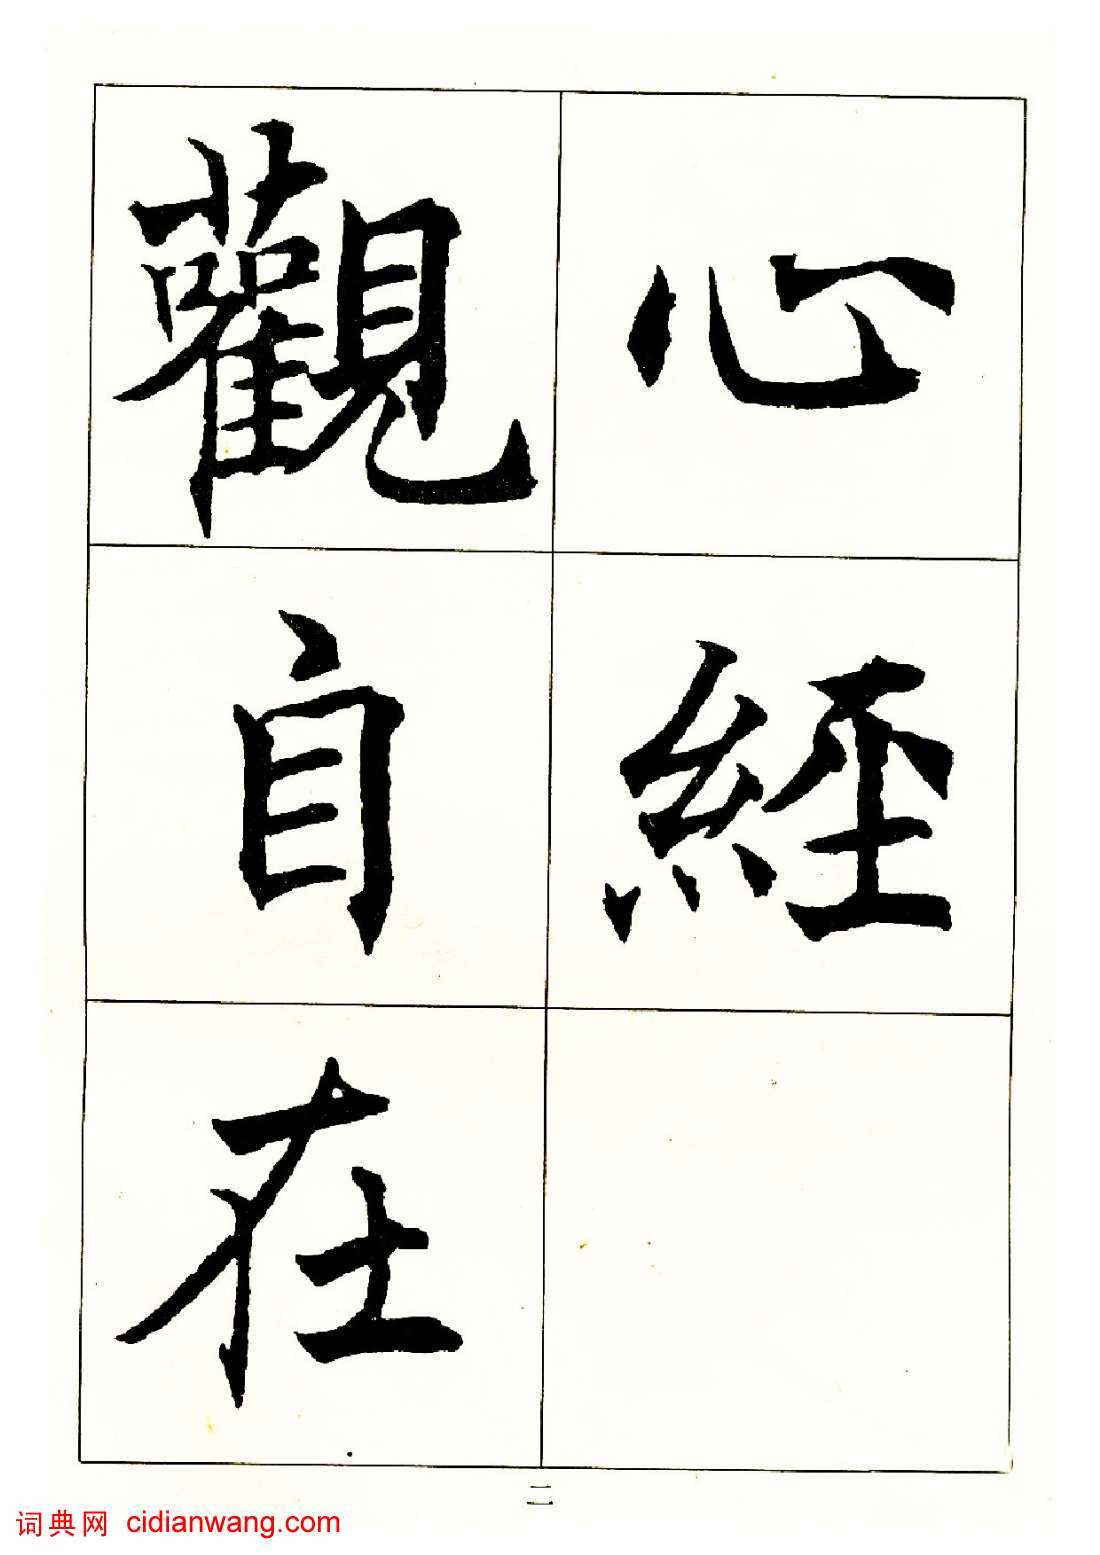 心經
觀自在
二
词典网 cidianwang.com